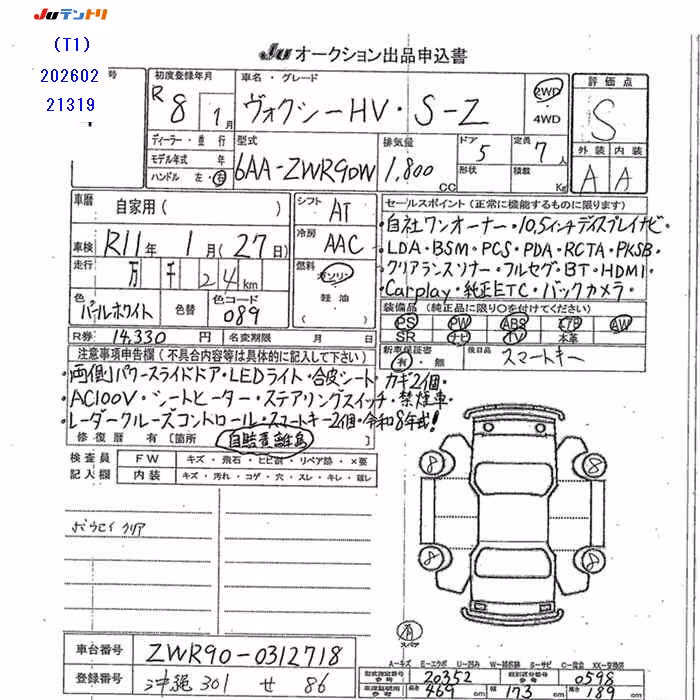 Juテントリ
(T1)
202602
21319
Ju オークション出品申込書
号
初度登録年月 R8年1月
車名・グレード ヴォクシーHV・S-Z
2WD・4WD
評価点 S
ディーラー・並行
モデル年式 年
ハンドル 左・右
型式 6AA-ZWR90W
排気量 1,800 CC
ドア 5 形状
定員 7人 積載 Kg
外装 A 内装 A
車歴 自家用( )
シフト AT
セールスポイント(正常に機能するものに限ります)
・自社ワンオーナー・10.5インチディスプレイナビ
・LDA・BSM・PCS・PDA・RCTA・PKSB
・クリアランスソナー・フルセグ・BT・HDMI
・Carplay・純正ETC・バックカメラ・
車検 R11年1月(27日)
冷房 AAC
走行 万千24km
燃料 ガソリン・軽油( )
色 パールホワイト 色替 色コード 089
装備品(純正品に限り○を付けてください)
PS PW ABS エアB AW
SR ナビ TV 本革
R券 14,330円 名変期限 月 日
新車保証書 有・無 後日品 スマートキー
注意事項申告欄(不具合内容等は具体的に記入して下さい)
・両側パワースライドドア・LEDライト・合皮シート・カギ2個・
・AC100V・シートヒーター・ステアリングスイッチ・禁煙車・
・レーダークルーズコントロール・スマートキー2個・令和8年式!
修復歴 有[箇所 自賠責離島 ]
検査員記入欄 FW キズ・飛石・ヒビ割・リペア跡・×要
内装 キズ・汚れ・コゲ・穴・スレ・キレ・破レ
8 8
8 8
スペア
車台番号 ZWR90-0312718
登録番号 沖縄 301 せ 86
A=キズ E=エクボ U=凹み W=補修跡 S=サビ C=腐食 XX=交換済
型式指定番号 20352 類別区分番号 0598
参考 長さ 469 幅 173 高さ 189